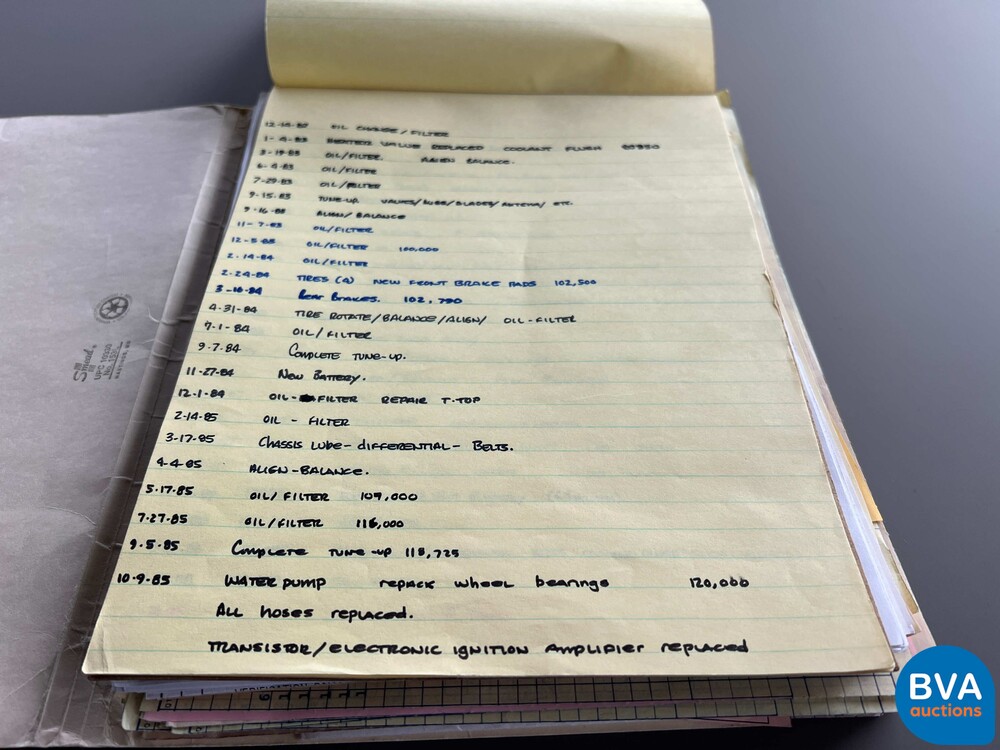 OIL CHANGE/FILTER
1-4-83 HEATER VALVE REPLACED COOLANT FLUSH
3-19-83 OIL/FILTER BALANCE.
6-4-83 OIL/FILTER
7-29-83 OIL/FILTER
9-15-83 TUNE-UP VALVES/LUBE/BLADES/ANTENA/ ETC.
ALIGN/BALANCE
11-7-83 OIL/FILTER
OIL/FILTER 100,000
2-14-84 OIL/FILTER
2-24-84 TIRES (4) NEW FRONT BRAKE PADS 102,500
3-10-84 Rear Brakes. 102,790
4-31-84 TIRE ROTATE/BALANCE/ALIGN/ OIL-FILTER
7-1-84 OIL/FILTER
9-7-84 COMPLETE TUNE-UP.
11-27-84 NEW BATTERY.
12-1-84 OIL-FILTER REPAIR T-TOP
2-14-85 OIL - FILTER
3-17-85 CHASSIS LUBE- DIFFERENTIAL- BELTS.
4-4-85 ALIGN-BALANCE.
5-17-85 OIL/FILTER 109,000
7-27-85 OIL/FILTER 116,000
9-5-85 Complete TUNE-UP 118,725
10-9-85 WATER PUMP repack wheel bearings 120,000
ALL hoses replaced.
TRANSISTOR/ELECTRONIC IGNITION AMPLIFIER replaced
Smead
UPC 10330
HASTINGS, MN
BVA
auctions